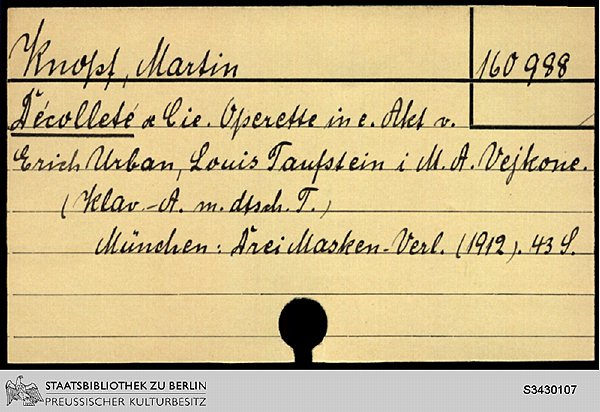 Knopf, Martin
160 988
Décolleté & Cie. Operette in e. Akt v.
Erich Urban, Louis Taufstein i M. A. Vejkone.
(Klav.-A. m. dtsch. T.)
München: Drei Masken-Verl. (1912). 43 S.
STAATSBIBLIOTHEK ZU BERLIN
PREUSSISCHER KULTURBESITZ
S3430107